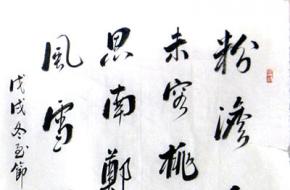 粉澹
未容桃
思南鄭
風雪
戊戌冬至節